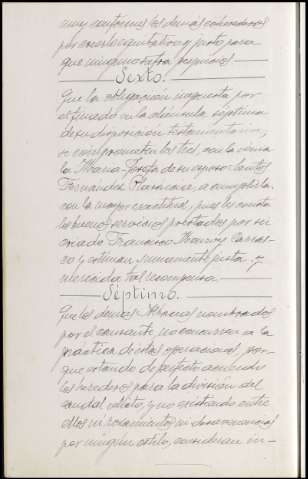 muy conformes los demás coherederos
por creerlo equitativo y justo para
que ninguno sufra perjuicio.
Sexto.
Que la obligación impuesta por
el finado en la cláusula séptima
de su disposición testamentaria,
se comprometen los tres, con la viuda
y la María Josefa de su esposo Santos
Fernández a cumplirla
con la mayor exactitud, pues les consta
los buenos servicios prestados por su
criado Francisco Carras-
co y estiman sumamente justa y
merecida tal recompensa.
Séptimo.
Que los demás Albaceas nombrados
por el causante no concurren a la
práctica de estas operaciones, por-
que estando de perfecto acuerdo
los herederos para la división del
caudal relicto, y no existiendo entre
ellos ni rozamientos ni desavenencias
por ningún estilo, consideran in-